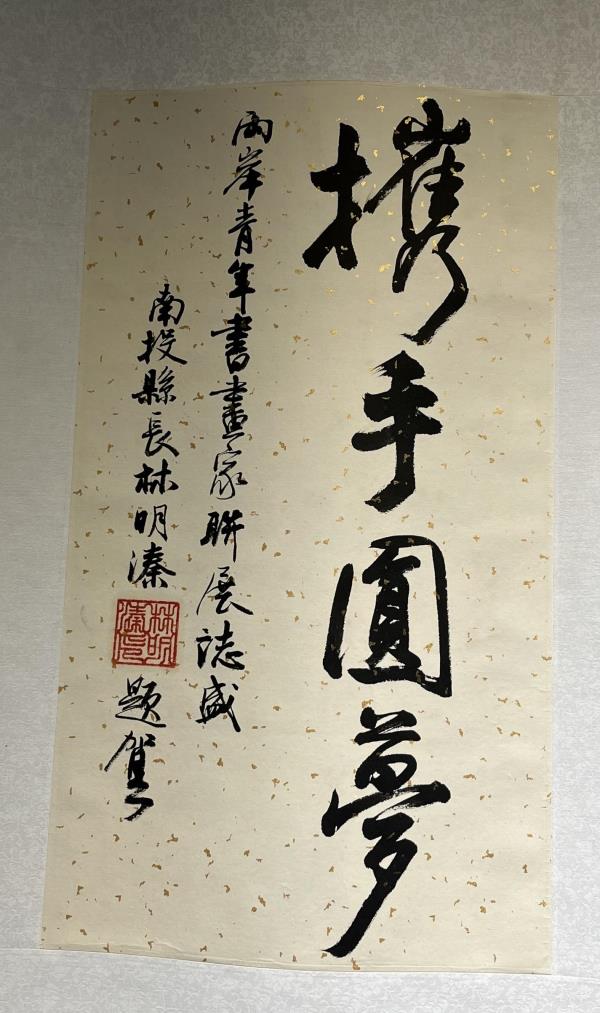 攜手圓夢
兩岸青年書畫家聯展誌盛
南投縣長林明溱
林明溱印
題賀